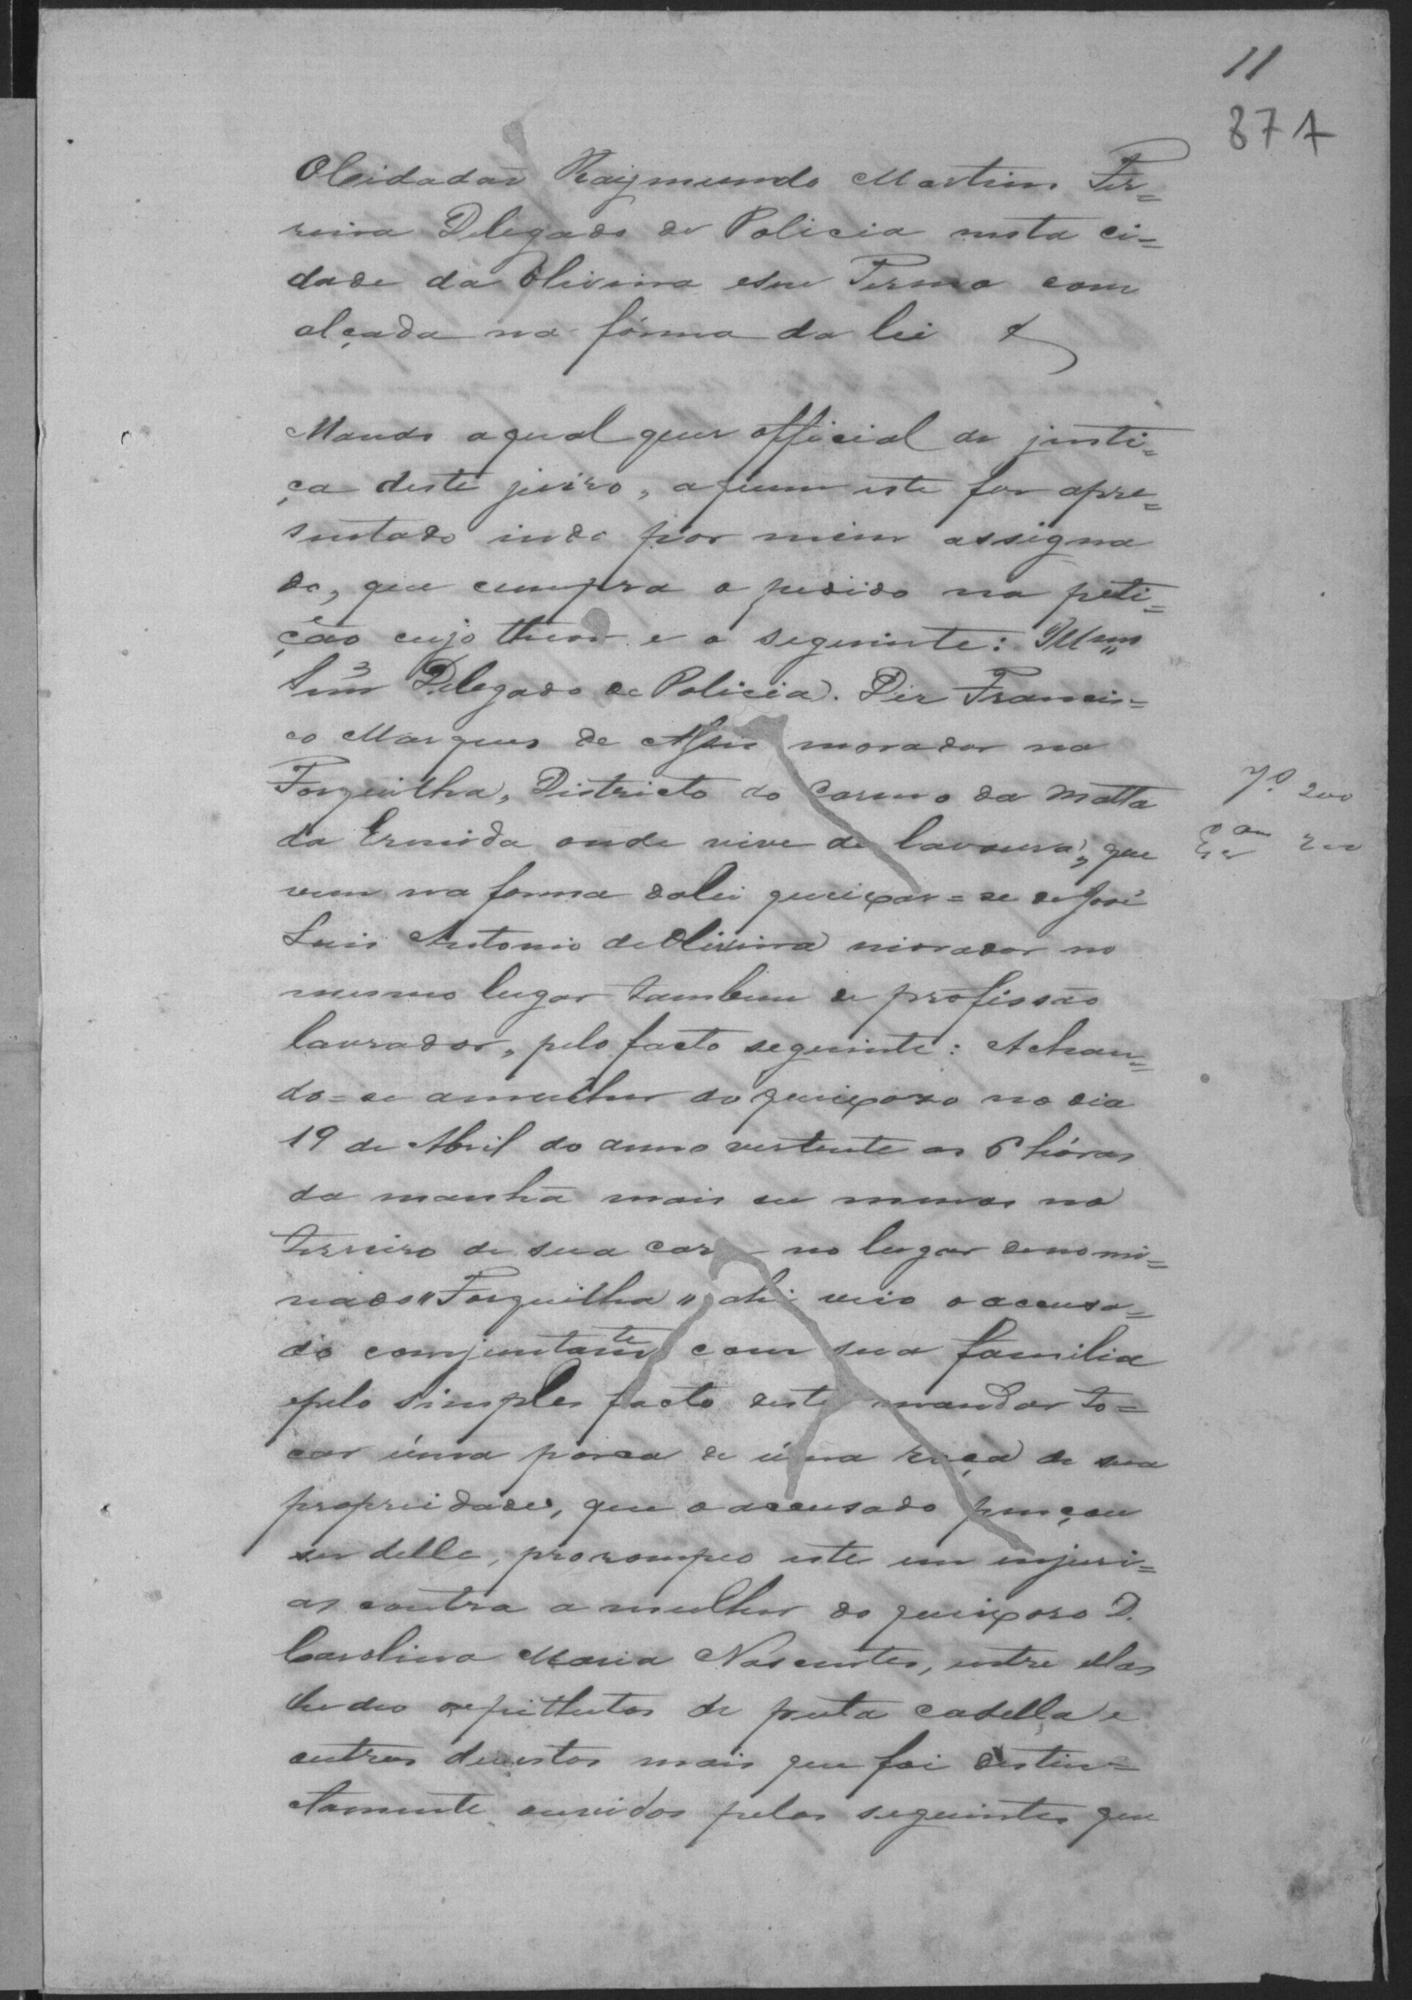 11
87 A
O Cidadão Raymundo Martins Fer=
reira Delegado de Policia nesta ci=
dade da Oliveira e seu Termo com
alçada na fórma da lei &
Mando a qual quer official de justi=
ça deste juizo, a quem este for apre=
sentado indo por mim assigna
do, que cumpra o pedido na peti=
ção cujo theor e o seguinte: Illmo
Snr Delegado de Policia. Diz Francis=
co Marques de morador na
Forquilha, Districto do Carmo da Matta
da Ermida onde vive de lavoura, que
vem na forma da lei queixar=se de José
Luis Antonio de Oliveira morador no
mesmo lugar tambem de profissão
lavrador, pelo facto seguinte: Achan=
do=se a mulher do queixoso no dia
19 de Abril do anno vertente as 6 hóras
da manhã mais ou menos no
terreiro de sua casa no lugar denomi=
nado "Forquilha" ahi veio o accusa=
do conjuntamte com sua familia
e pelo simples facto deste mandar to=
car úma porca de úma roça de sua
propriedade, que o accusado pençou
ser delle, prorompeo este em injuri=
as contra a mulher do queixoso D.
Carolina Maria Nascentes, entre ellas
lhe deo os epithetos de puta cadella e
outros deuestos mais que foi destin=
ctamente ouvidos pelas seguintes que
7º 200
200